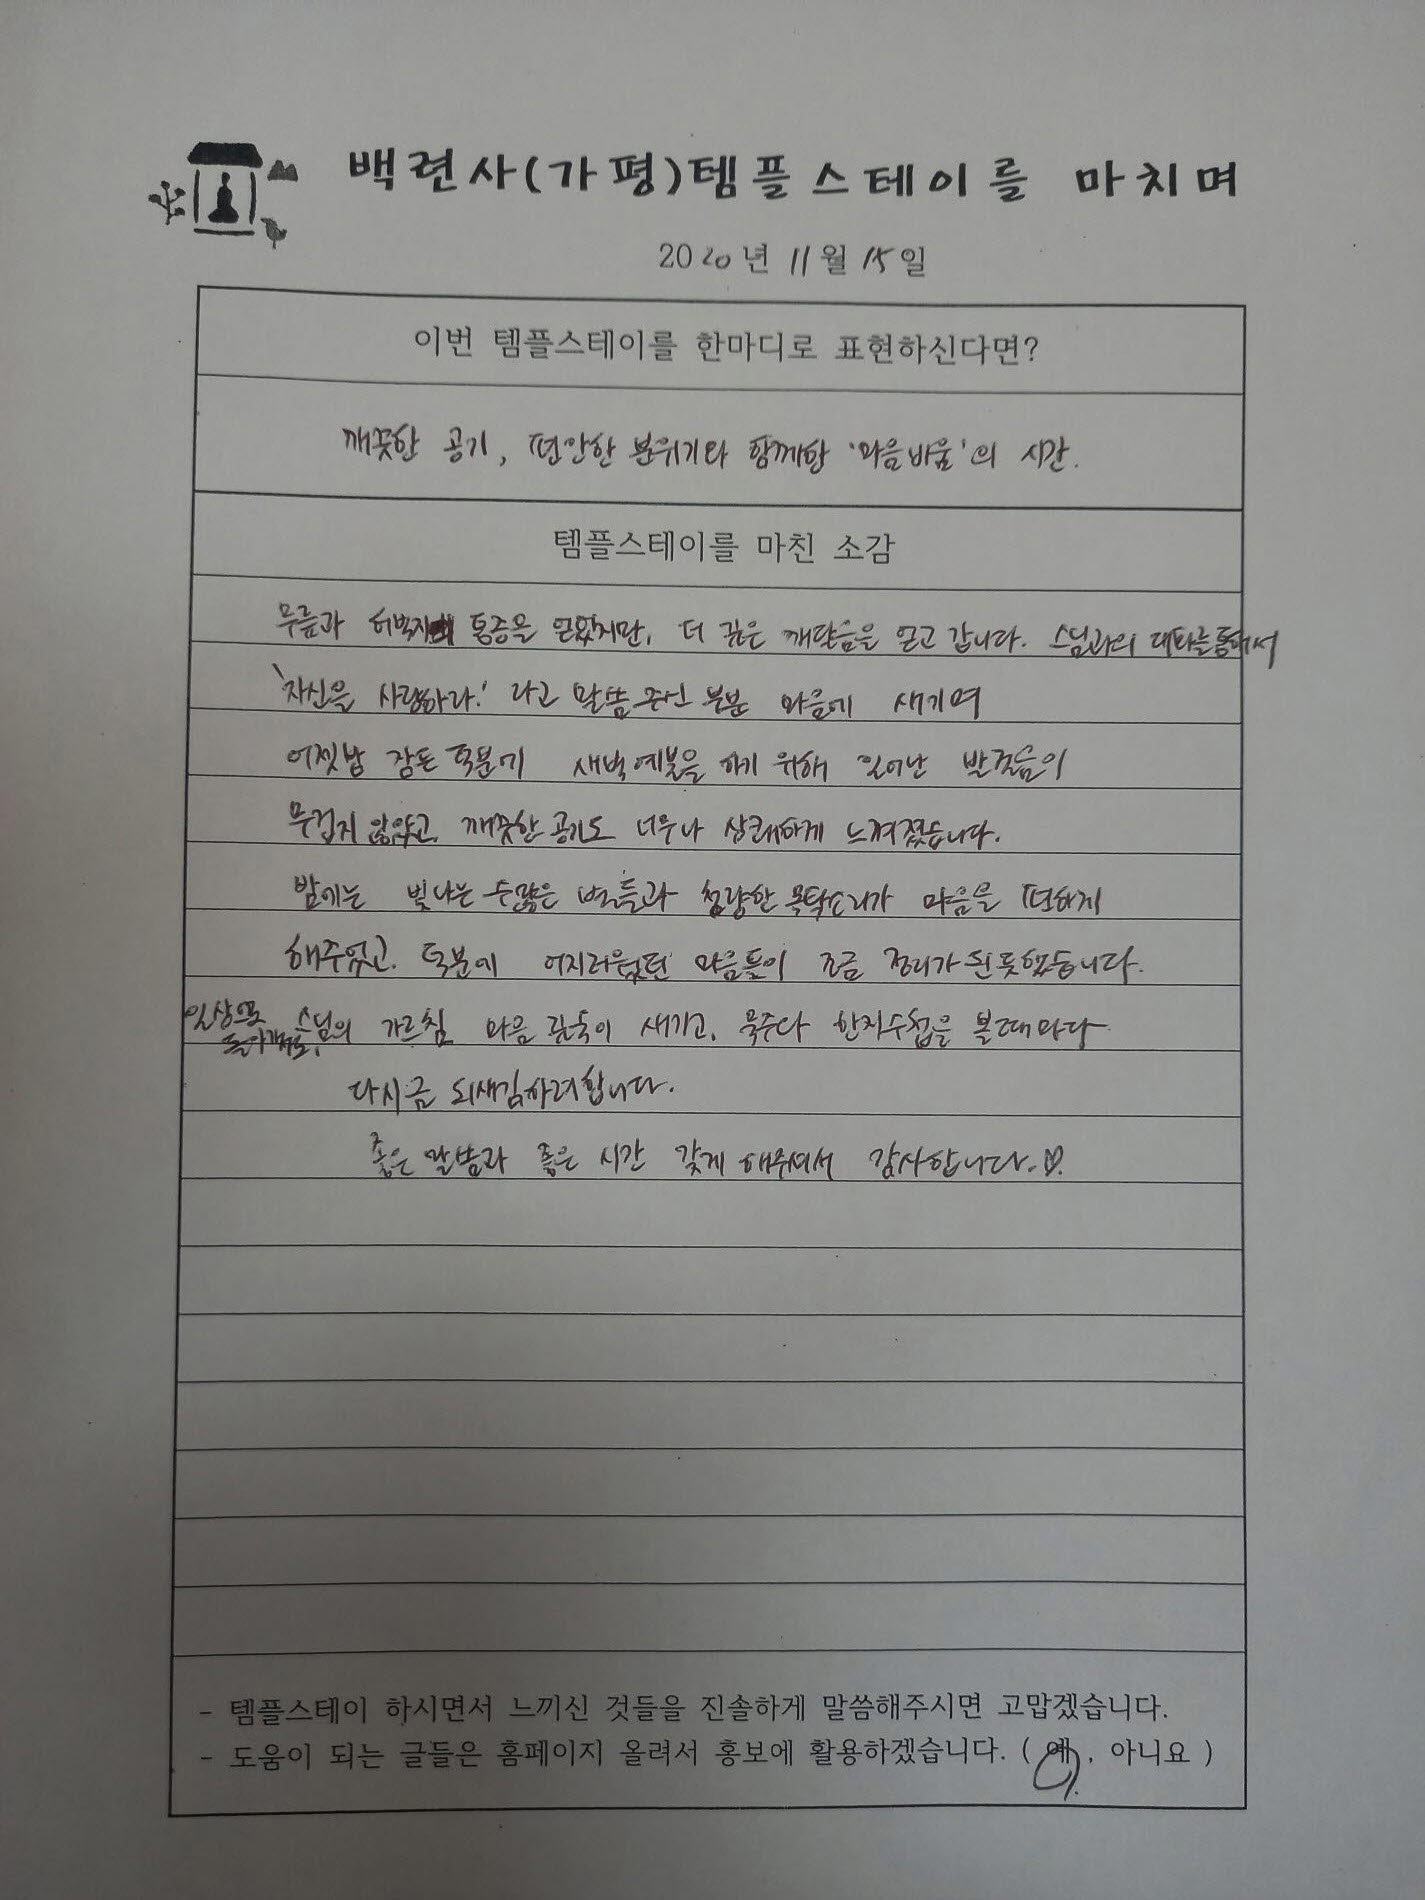 백련사(가평)템플스테이를 마치며
2020년 11월 15일
이번 템플스테이를 한마디로 표현하신다면?
깨끗한 공기, 편안한 분위기와 함께한 '마음비움'의 시간.
템플스테이를 마친 소감
무릎과 허벅지에 통증을 얻었지만, 더 깊은 깨달음을 얻고 갑니다. 스님과의 대화를 통해서
'자신을 사랑하라!' 라고 말씀 주신 부분 마음에 새기며
어젯밤 잠든 덕분에 새벽예불을 하기 위해 일어난 발걸음이
무겁지 않았고, 깨끗한 공기도 너무나 상쾌하게 느껴졌습니다.
밤에는 빛나는 수많은 별들과 청량한 목탁소리가 마음을 편하게
해주었고, 덕분에 어지러웠던 마음들이 조금 정리가 된듯했습니다.
일상으로 돌아가서도, 스님의 가르침 마음 깊숙이 새기고, 묵주나 한지수첩을 볼때마다
다시금 되새김하려합니다.
좋은 말씀과 좋은 시간 갖게 해주셔서 감사합니다.♡.
- 템플스테이 하시면서 느끼신 것들을 진솔하게 말씀해주시면 고맙겠습니다.
- 도움이 되는 글들은 홈페이지 올려서 홍보에 활용하겠습니다. ( 예 , 아니요 )